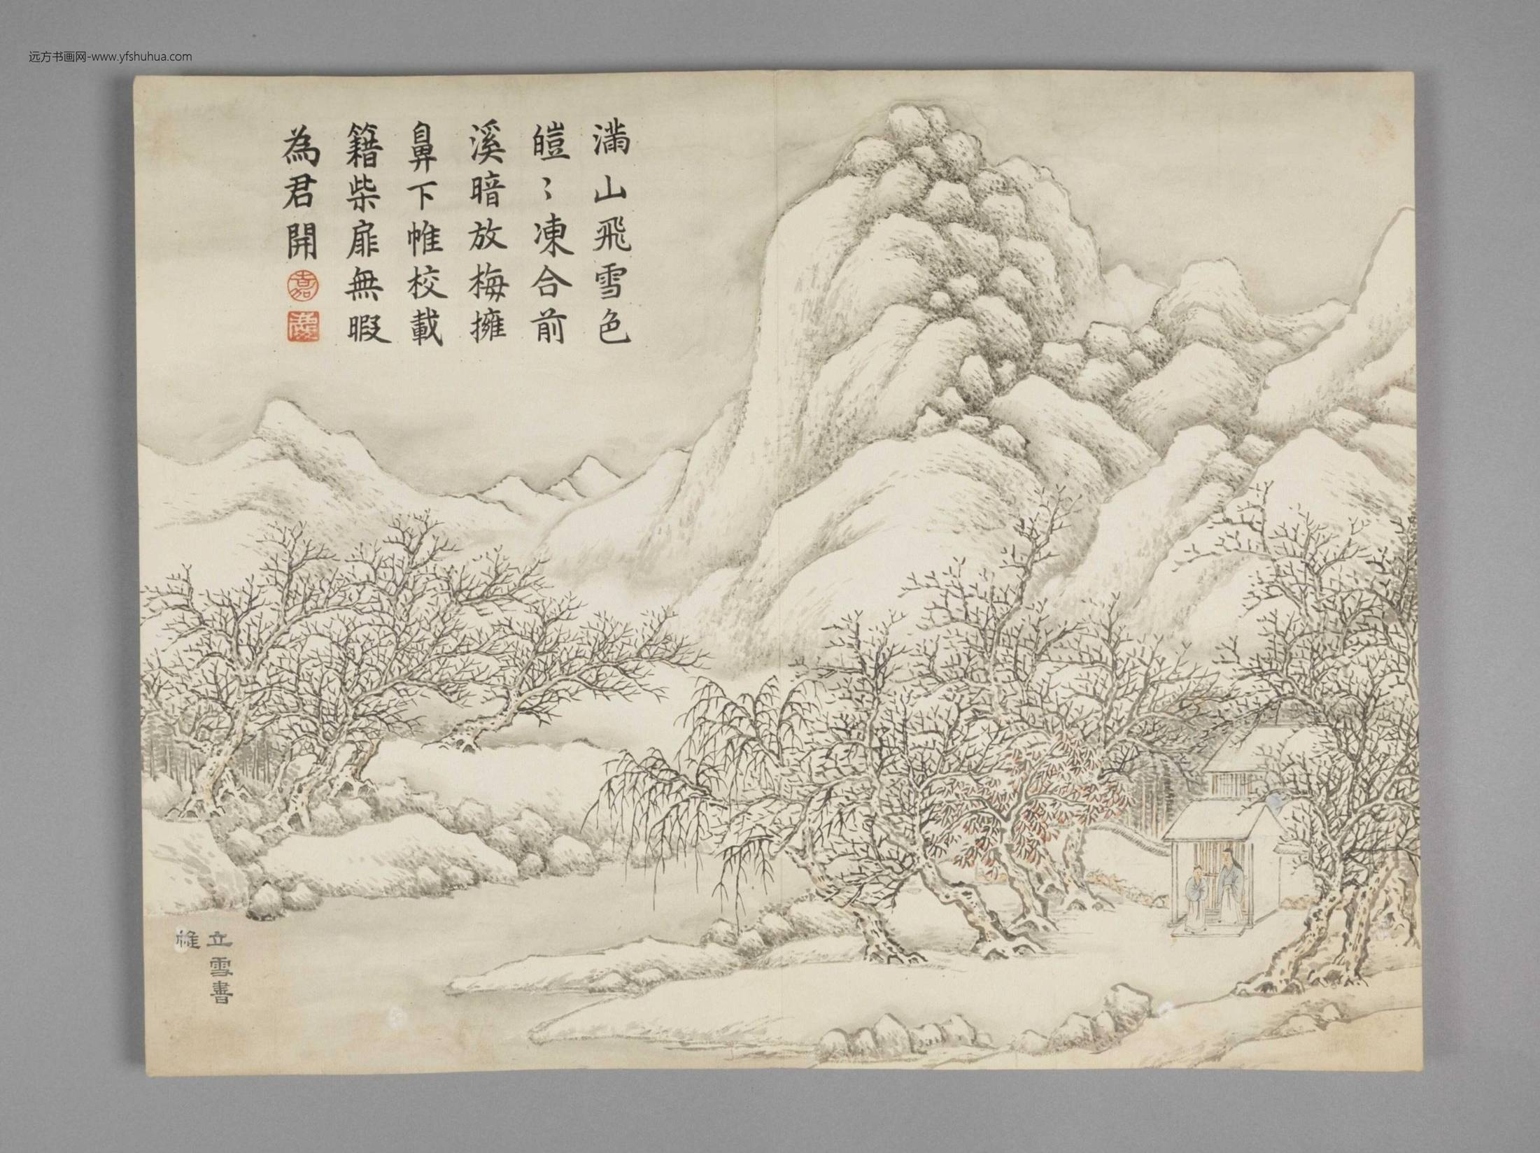 远方书画网-www.yfshuhua.com
滿山飛雪色
皚〻凍合前
溪暗放梅擁
鼻下帷校載
籍柴扉無暇
為君開
嘉
立雪書
帷